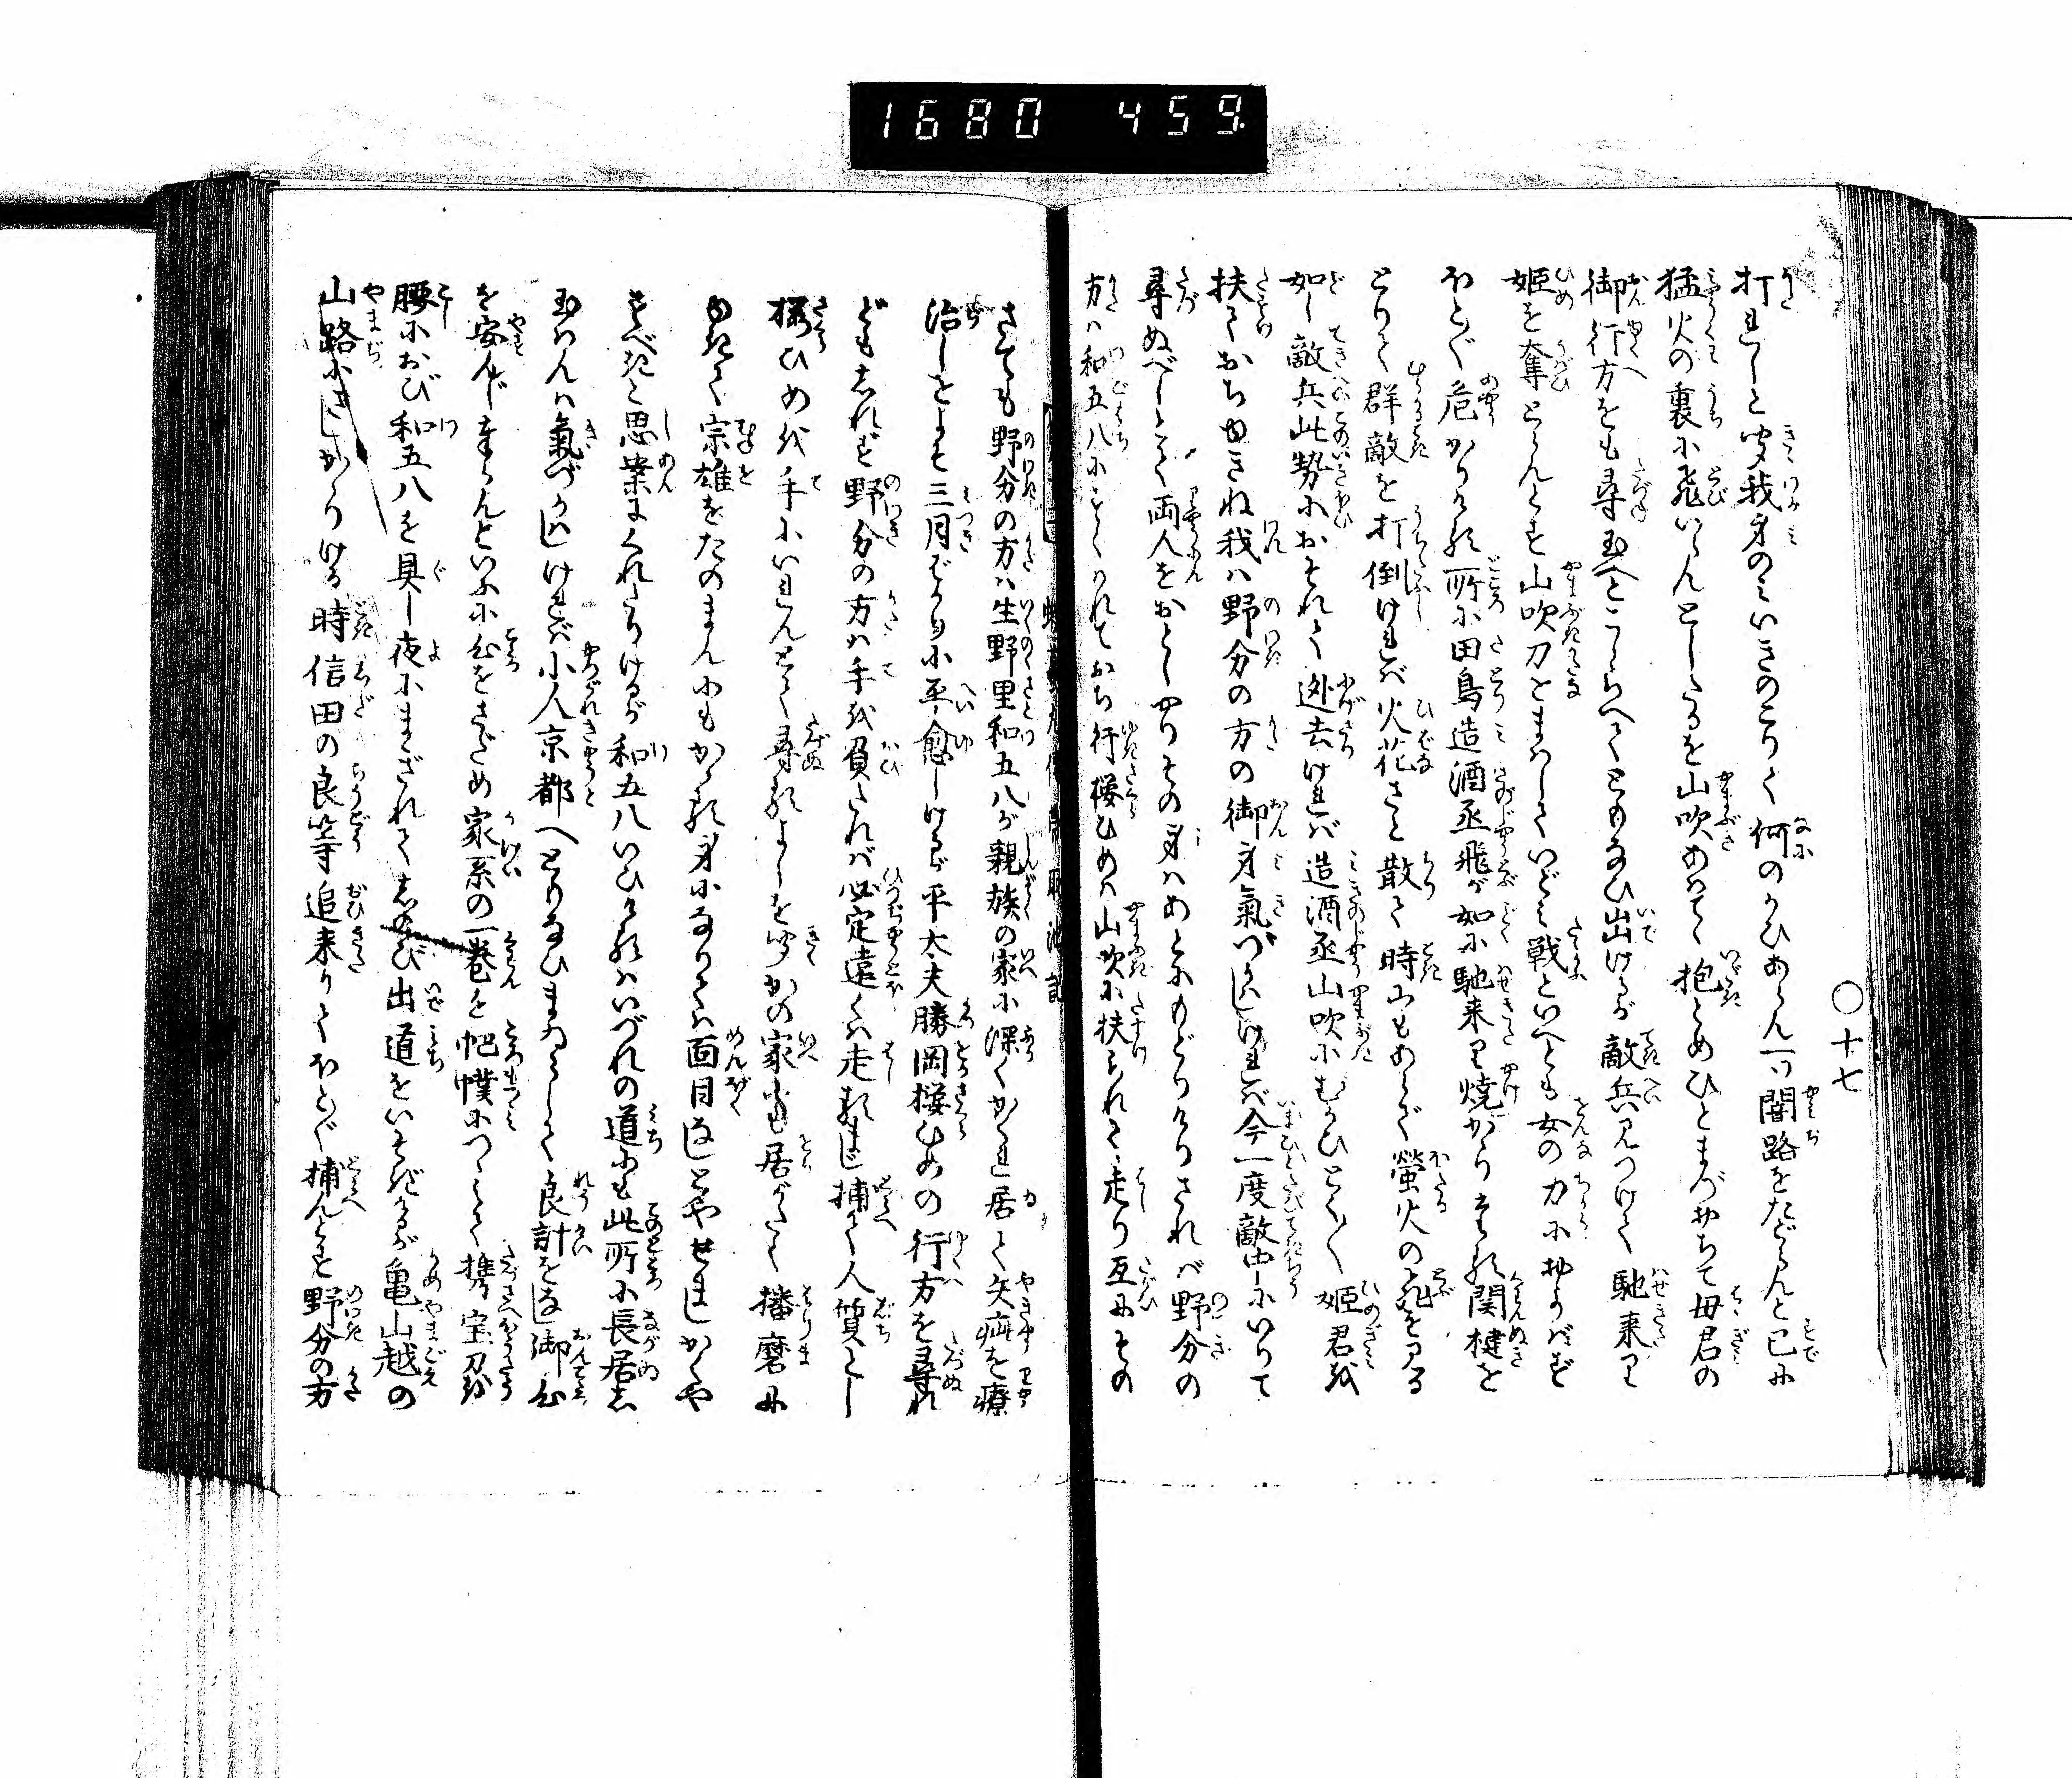 1680 459
〇十七
打れしと聞我身のミいきのこりて何のかひあらん一ツ闇路をたどらんと已に
猛火の裏に飛いらんとしたるを山吹あはてゝ抱とめひとまづおちて母君の
御行方をも尋玉へとこしらへてともなひ出けるが敵兵見つけて馳来り
姫を奪とらんとす山吹刀をまはしさゝいどミ戦といへとも女の力におよバず
ほとんど危かりける所に田鳥造酒丞飛が如に馳来り焼がらせる関楗を
とりて群敵を打倒けれバ火花さと散て時にもあらで螢火の飛を見る
如し敵兵此勢におそれて迯去けれバ造酒丞山吹にむかひとく〳〵姫君を
扶ておちゆきね我ハ野分の方の御身氣づかハしけれバ今一度敵中にいりて
尋ぬべしとて両人をおとしやりその身ハあとにもどりけりされバ野分の
方ハ和五八にともなハれておち行桜ひめハ山吹に扶られて走り互にその
さても野分の方ハ生野里和五八が親族の家に深くかくれ居て矢疵を療
治しをよそ三月ばかり小平愈しけるが平太夫勝岡桜ひめの行方を尋れ
どもしれず野分の方ハ手を負たれバ必定遠くハ走るまじ捕へて人質とし
桜ひめを手にいれんとて尋るよしを聞かの家にも居がたく播磨に
ゆきて宗雄をたのまんにもかゝる身になりてハ面目なしとやせましかくや
すべきと思案にくれたりけるが和五八いひけるハいづれの道にも此所に長居し
玉ハんハ氣づかハしけれバ小人京都へともなひまゐらして良計をなし御心
を安んじまゐらんといふに心をさだめ家系の一巻を帊幞につゝミて携宝刀を
腰におび和五八を具し夜にまぎれてしのび出道をいそぎけるが亀山越の
山路にさしかゝりける時信田の良等追来りてほとんど捕んとす野分の方